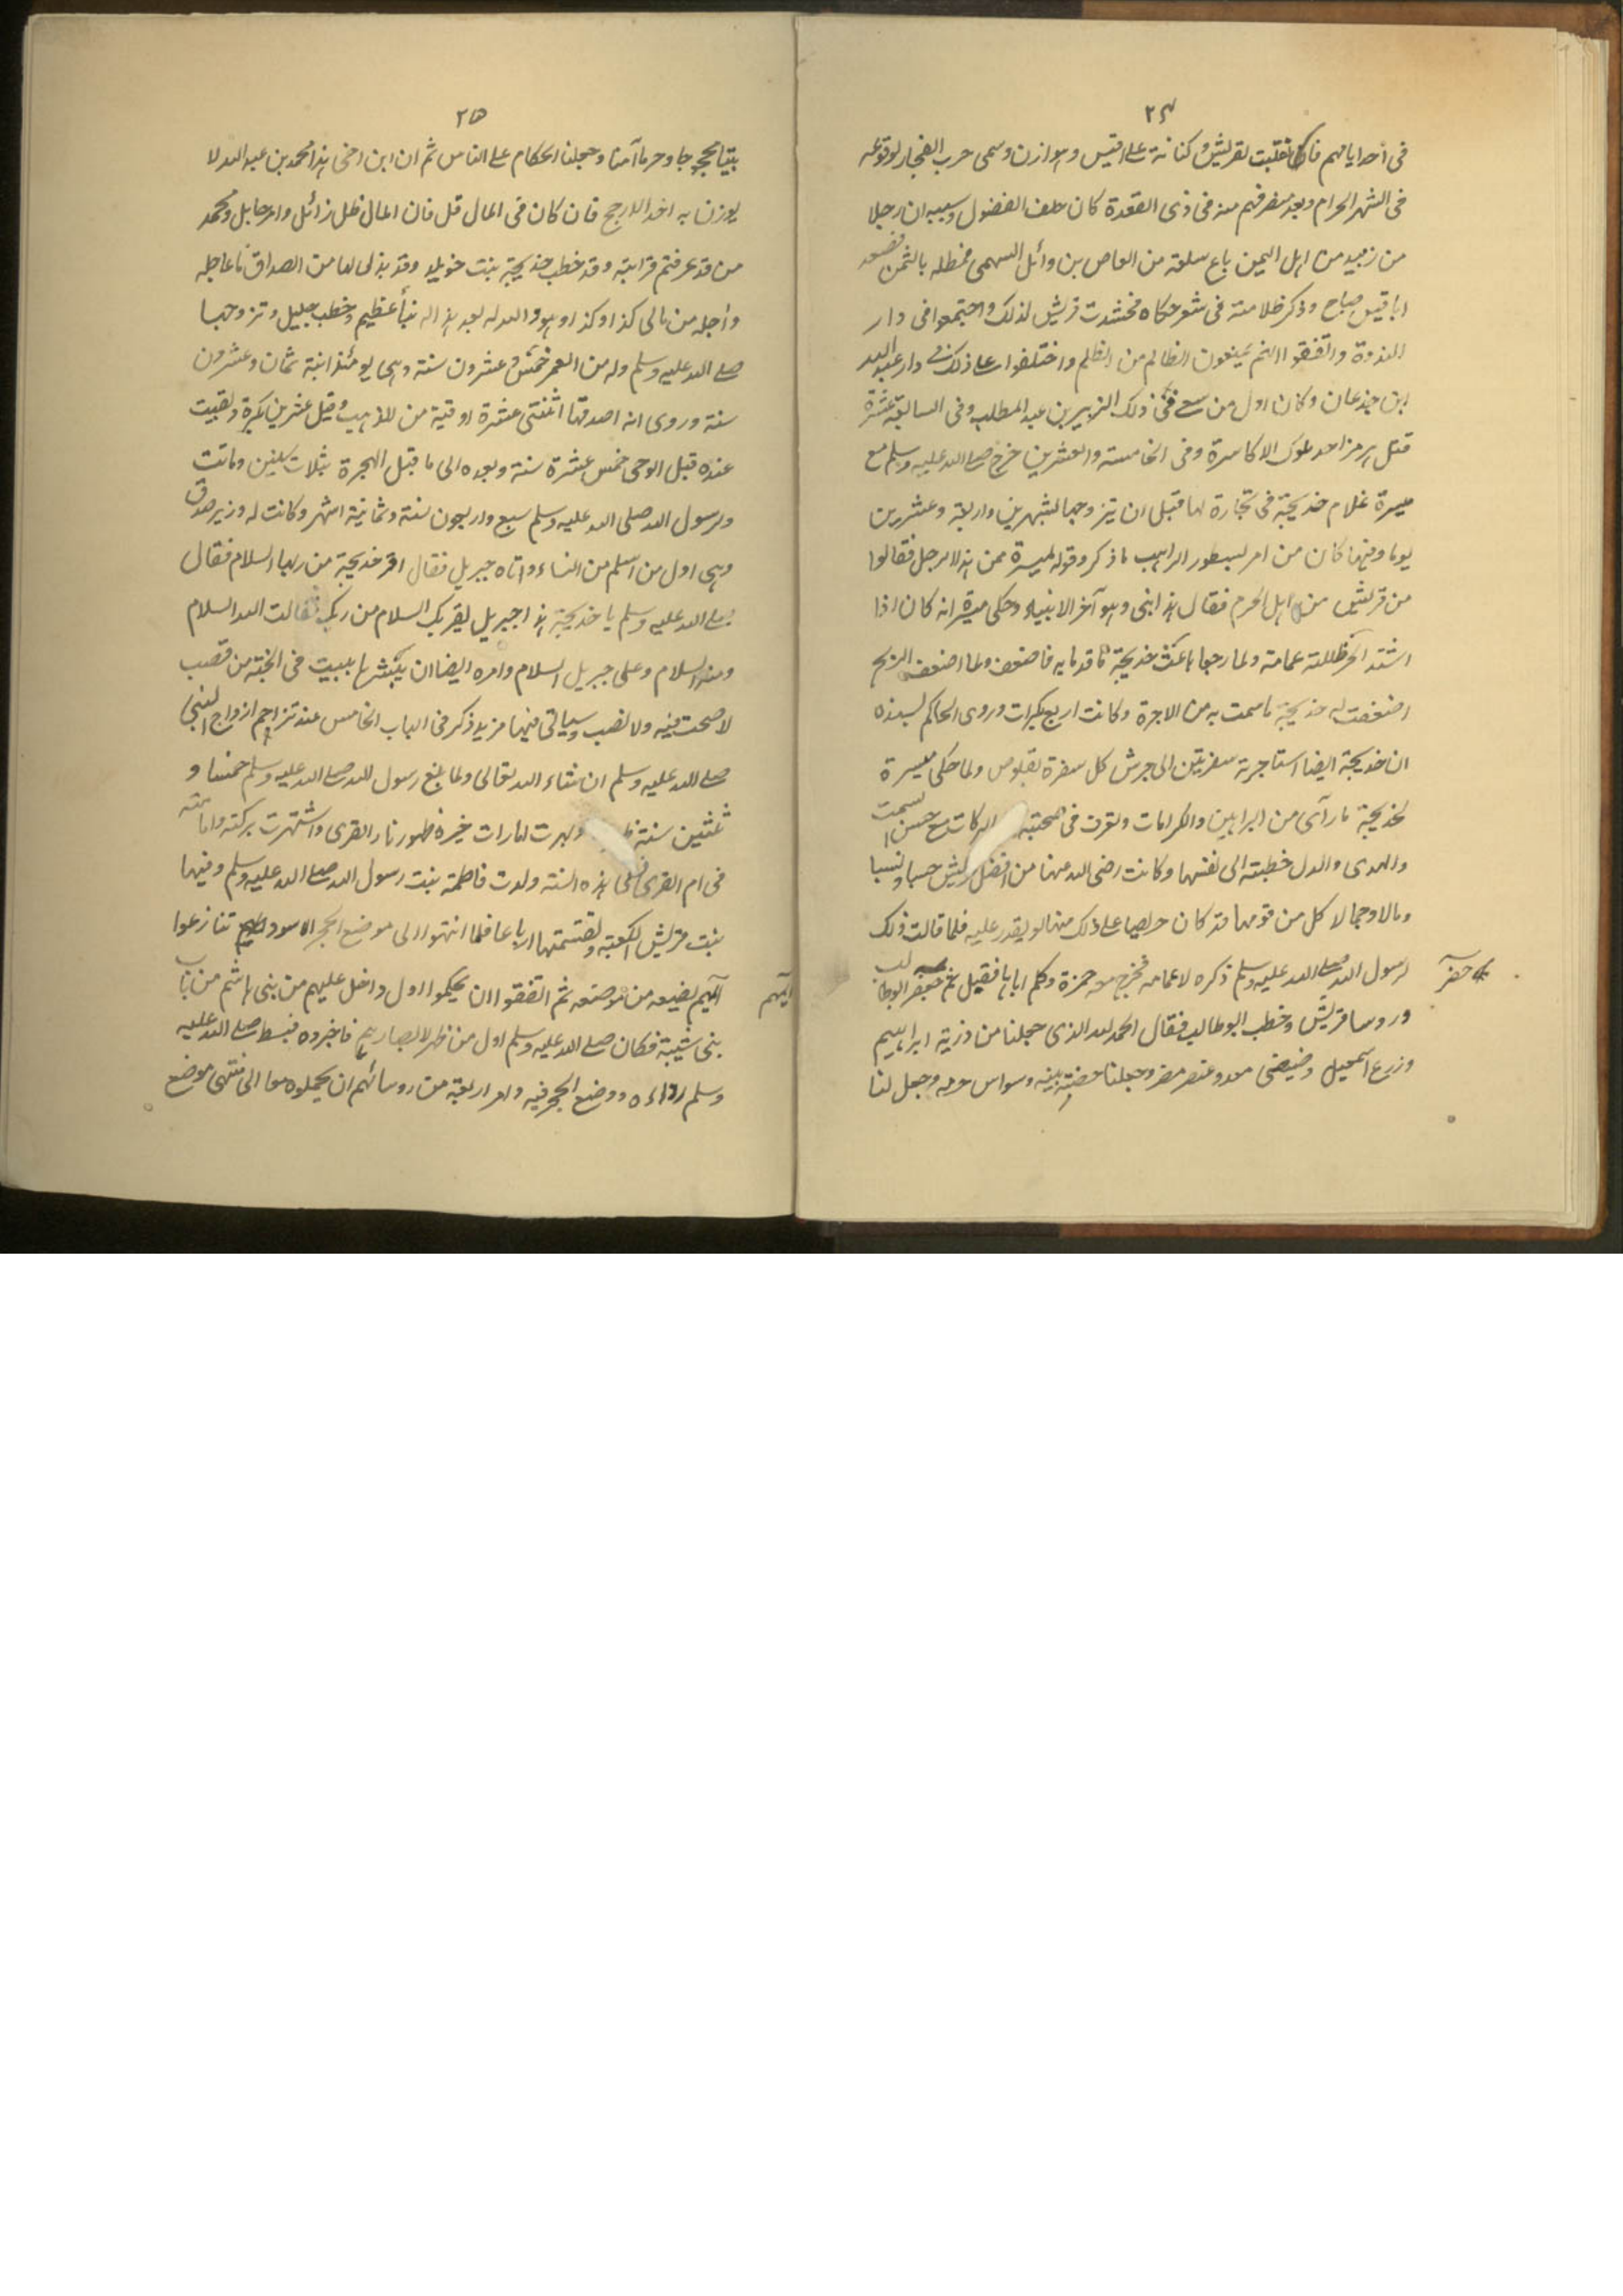 ٢٤
فى أحد ايامهم فا نقلبت لقريش وكنانة على قيس وهوازن وسمى حرب الفجار لوقوعه
فى الشهر الحرام وبعد منصرفهم منه فى ذى القعدة كان حلف الفضول وسببه ان رجلا
من زبيد من اهل اليمن باع سلعة من العاص بن وائل السهمى فمطله بالثمن فصعد
ابا قبيس صباح وذكر ظلامته فى شعر حكاه فحشدت قريش لذلك واجتمعوا فى دار
الندوة واتفقوا انهم يمنعون الظالم من الظلم واختلفوا على ذلك فى دار عبد الله
ابن جدعان وكان اول من سعى فى ذلك الزبير بن عبد المطلب وفى السابعة عشرة
قتل هرمز احد ملوك الاكاسرة وفى الخامسة والعشرين خرج صلى الله عليه وسلم مع
ميسرة غلام خديجة فى تجارة لها قبل ان يتزوجها بشهرين واربعة وعشرين
يوما وفيها كان من امر نسطور الراهب ما ذكر وقوله لميسرة ممن هذا الرجل فقالوا
من قريش من اهل الحرم فقال هذا نبى وهو آخر الانبياء وحكى ميسرة انه كان اذا
اشتد الحر ظللته غمامة ولما رجعا باعت خديجة ما قدما به فاضعف ولما اضعف الربح
اضعفت له خديجة ما سمت به من الاجرة وكانت اربع بكرات وروى الحاكم بسنده
ان خديجة ايضا استاجرته سفرتين الى جرش كل سفرة بقلوص ولما حكى ميسرة
لخديجة ما رآى من البراهين والكرامات وتعرت فى صحبته البركات مع حسن السمت
والهدى والدل خطبته الى نفسها وكانت رضى الله عنها من افضل قريش حسبا ونسبا
ومالا وجمالا كل من قومها قد كان حريصا على ذلك منها لو يقدر عليه فلما قالت ذلك
لرسول الله صلى الله عليه وسلم ذكره لاعمامه فخرج معه حمزة وكلم اباها فقبل ثم حضر ابوطالب
حضر
وروسا قريش وخطب ابو طالب فقال الحمد لله الذى جعلنا من ذرية ابراهيم
وزرع اسمعيل وضئضى معد وعنصر مضر وجعلنا حضنة بيته وسواس حرمه وجعل لنا
٢٥
بيتا محجوجا وحرما آمنا وجعلنا الحكام على الناس ثم ان ابن اخى هذا محمد بن عبد الله لا
يوزن به احد الا رجح فان كان فى المال قل فان المال ظل زائل وامر حايل ومحمد
من قد عرفتم قرابته وقد خطب خديجة بنت خويلد وقد بذل لها من الصداق ما عاجله
وأجله من مالى كذا وكذا وهو والله له بعد هذا له نبأ عظيم وخطب جليل وتزوجها
صلى الله عليه وسلم وله من العمر خمس وعشرون سنة وهى يومئذ ابنة ثمان وعشرون
سنة وروى انه اصدقها اثنتى عشرة اوقية من الذهب وقيل عشرين بكرة وبقيت
عنده قبل الوحى خمس عشرة سنة وبعده الى ما قبل الهجرة بثلاث سنين وماتت
ولرسول الله صلى الله عليه وسلم سبع واربعون سنة وثمانية اشهر وكانت له وزير صدق
وهى اول من اسلم من النساء واتاه جبريل فقال اقر خديجة من ربها السلام فقال
صلى الله عليه وسلم يا خديجة هذا جبريل يقريك السلام من ربك فقالت الله السلام
ومنه السلام وعلى جبريل السلام وامره ايضا ان يبشرها ببيت فى الجنة من قصب
لا صخب فيه ولا نصب وسياتى فيها مزيد ذكر فى الباب الخامس عند تراجم ازواج النبى
صلى الله عليه وسلم ان شاء الله تعالى ولما بلغ رسول الله صلى الله عليه وسلم خمسا و
ثلثين سنة وبهرت امارات خيره ظهور نار القرى واشتهرت بركته وامانته
فى ام القرى ففى هذه السنة ولدت فاطمة بنت رسول الله صلى الله عليه وسلم وفيها
بنت قريش الكعبة وتقسمتها ارباعا فلما انتهوا الى موضع الحجر الاسود تنازعوا
ايهم يضعه من موضعه ثم اتفقوا ان يحكموا اول داخل عليهم من بنى هاشم من باب
ايهم
بنى شيبة فكان صلى الله عليه وسلم اول من ظهر لابصارهم فاخبروه فبسط صلى الله عليه
وسلم رداءه ووضع الحجر فيه وامر اربعة من روسائهم ان يحملوه معا الى منتهى موضع